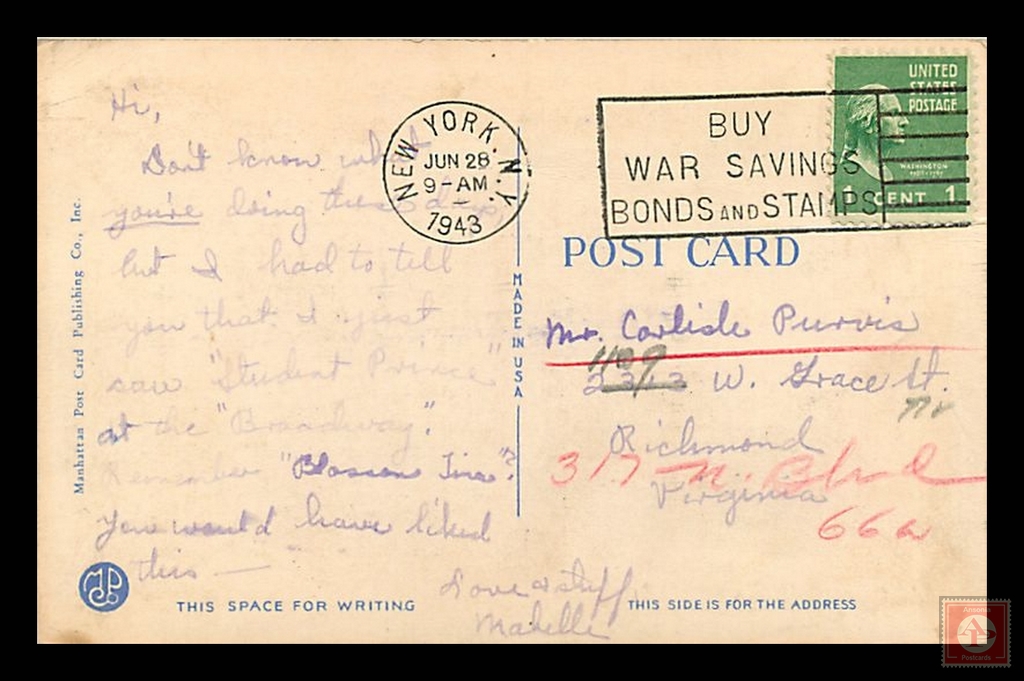 Hi,
Don't know what
you're doing these days,
but I had to tell
you that I just
saw "Student Prince"
at the "Broadway."
Remember "Blossom Time"?
You would have liked
this —
Love & stuff,
Mabelle
Manhattan Post Card Publishing Co., Inc.
MADE IN USA
NEW YORK, N.Y.
JUN 28
9-AM
1943
BUY
WAR SAVINGS
BONDS AND STAMPS
UNITED
STATES
POSTAGE
WASHINGTON
1 CENT 1
POST CARD
Mr. Carlisle Purvis
1109
2313 W. Grace St.
Richmond
317 N. Blvd
Virginia
66
MP
THIS SPACE FOR WRITING
THIS SIDE IS FOR THE ADDRESS
Ansonia
AP
Postcards